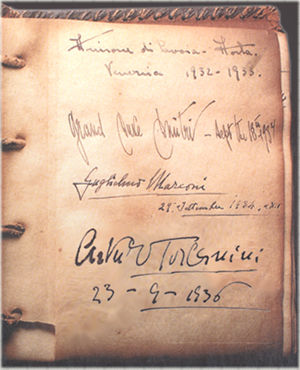 Aimone di Savoia - Aosta.
Venezia 1932 - 1933.
Grand Duke Dmitri – Sept the 18th 1934
Guglielmo Marconi
Settembre 1934. XII
Arturo Toscanini
23 - 9 - 1936